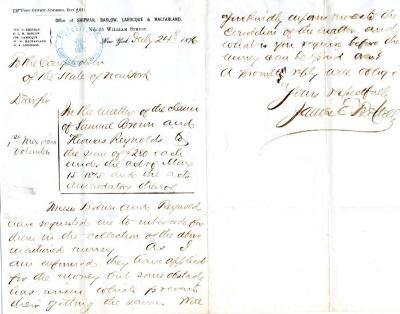 Post Office Address, Box
Office of SHIPMAN, BARLOW, LAROCQUE & MACFARLAND,
No. 35 WILLIAM STREET,
New York, July 20th 1876
To the Comptroller
of the State of New York
Dear Sir
In the matter of the Claim
of Samuel Brown and
Thomas Reynolds to
the sum of $280 each
under the act of May
15 1875 and the acts
amendatory thereof
1st Mexican
Volunteers
Messrs Brown and Reynolds
have requested me to intercede for
them in the collection of the above
mentioned money. As I
am informed they have applied
for the money but some obstacle
has arisen which prevents
their getting the same. Will
you kindly inform me as to the
condition of the matter and
what is you require before the
money can be paid and
A prompt reply will oblige
Yours respectfully
James E